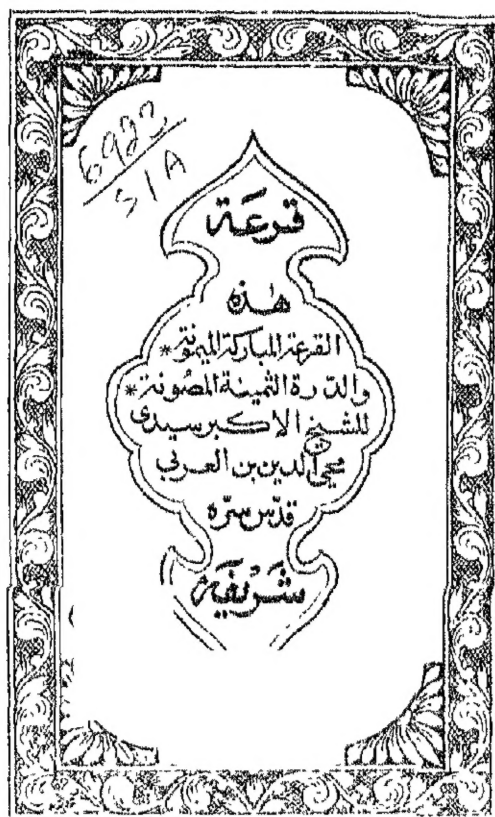 6922
S/A
قرعة
هذه
القرعة المباركة الميمونة *
والدرة الثمينة المصونة *
للشيخ الاكبر سيدى
محيي الدين بن العربي
قدّس سرّه
شريفة